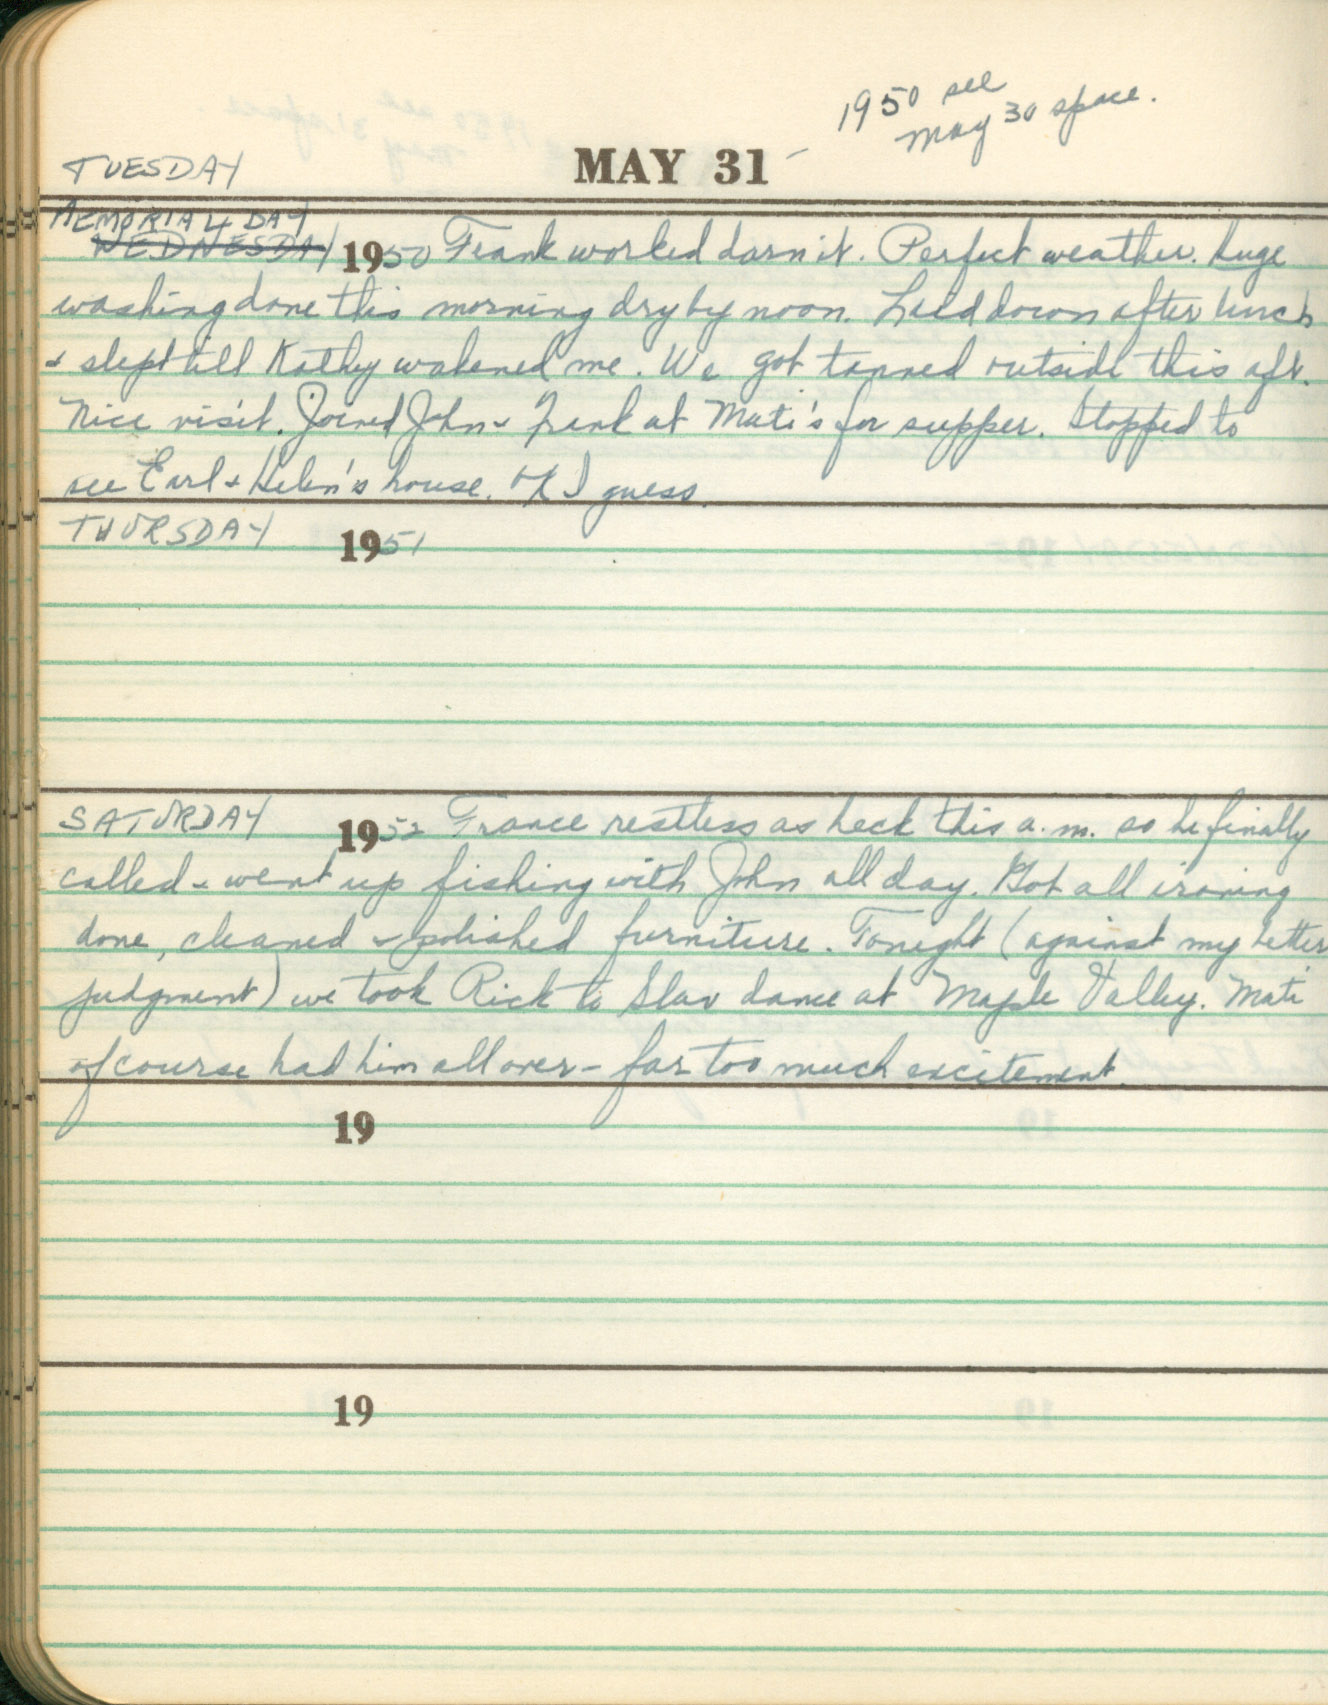 1950 see
May 30 space.
TUESDAY
MAY 31
MEMORIAL DAY
WEDNESDAY 1950 Frank worked darn it. Perfect weather. Huge
washing done this morning dry by noon. Laid down after lunch
& slept till Kathy wakened me. We got tanned outside this aft.
Nice visit. Joined John & Frank at Mati's for supper. Stopped to
see Earl & Helen's house. OK I guess.
THURSDAY 1951
SATURDAY 1952 France restless as heck this a.m. so he finally
called & went up fishing with John all day. Got all ironing
done, cleaned & polished furniture. Tonight (against my better
judgment) we took Rick to Slav dance at Maple Valley. Mati
of course had him all over – far too much excitement.
19
19